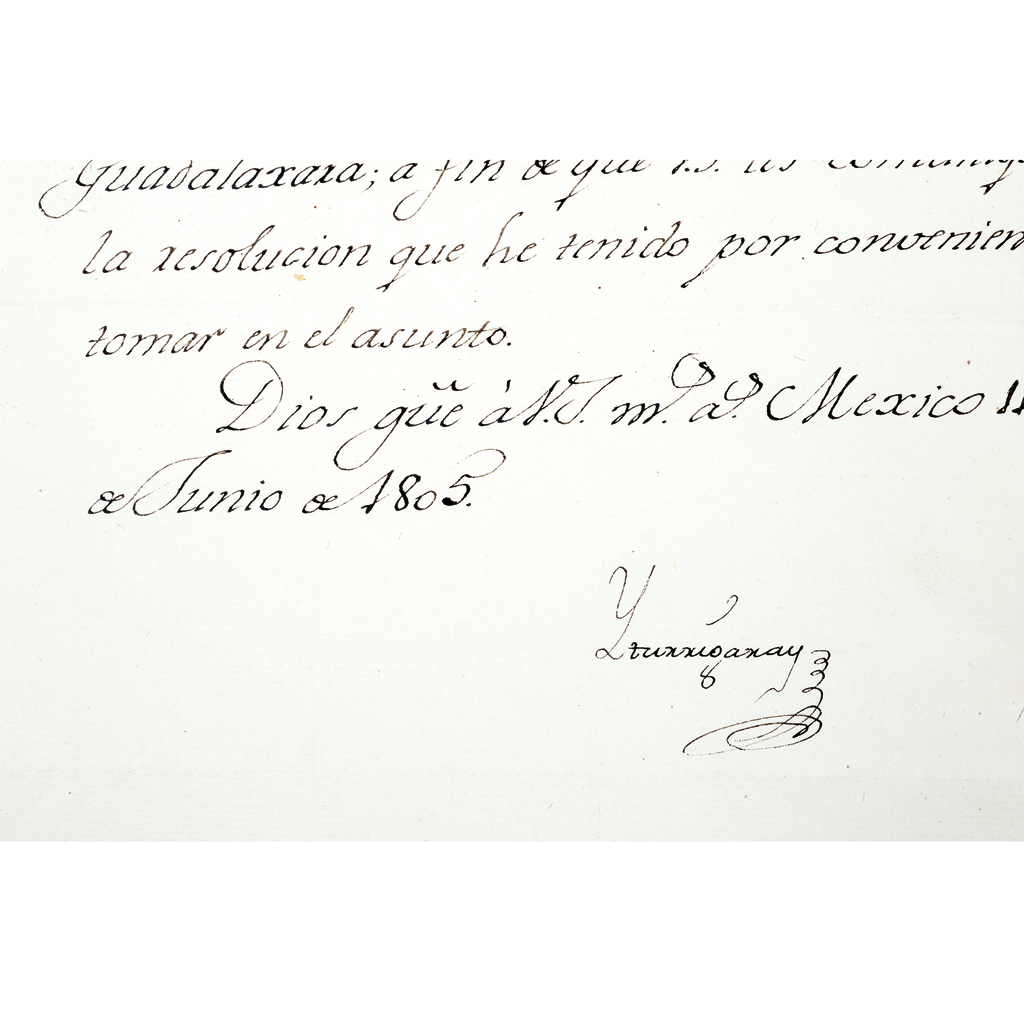 Guadalaxara; a fin de que V.S. les comuniq
la resolucion que he tenido por convenien
tomar en el asunto.
Dios gũe à V.S. m.s a.s Mexico 11
de Junio de 1805.
Yturrigaray